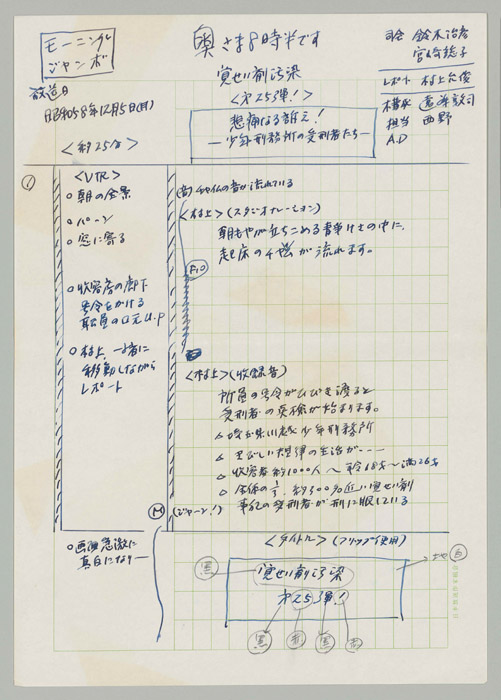 モーニング
ジャンボ
奥さま8時半です
覚せい剤汚染
<第25弾!>
悲痛なる訴え!
―少年刑務所の受刑者たち―
放送日
昭和58年12月5日(月)
<約25分>
司会 鈴木治彦
宮崎総子
レポート 村上
構成
担当 西野
A.D
①
<VTR>
○朝の全景
○パーン
○窓に寄る
○収容房の廊下
号令をかける
職員の口元U.P
○村上、一緒に
移動しながら
レポート
○画面急激に
真白になり―
(音)チャイムの音が流れている
<村上>(スタジオナレーション)
朝もやが立ちこめる書割けの中に、
起床のチャイムが流れます。
F.O
<村上>(収録音)
所員の号令がひびき渡ると
受刑者の点検が始まります。
△川越少年刑務所
△きびしい規律の生活が――
△収容者約1000人〜年令18才〜満26才
○全体の1/3、約300名近い覚せい剤
事犯の受刑者が刑に服している
M
(ジャーン!)
<タイトル>(フリップ使用)
覚せい剤汚染
第25弾!
黒
黒
赤
黒
白